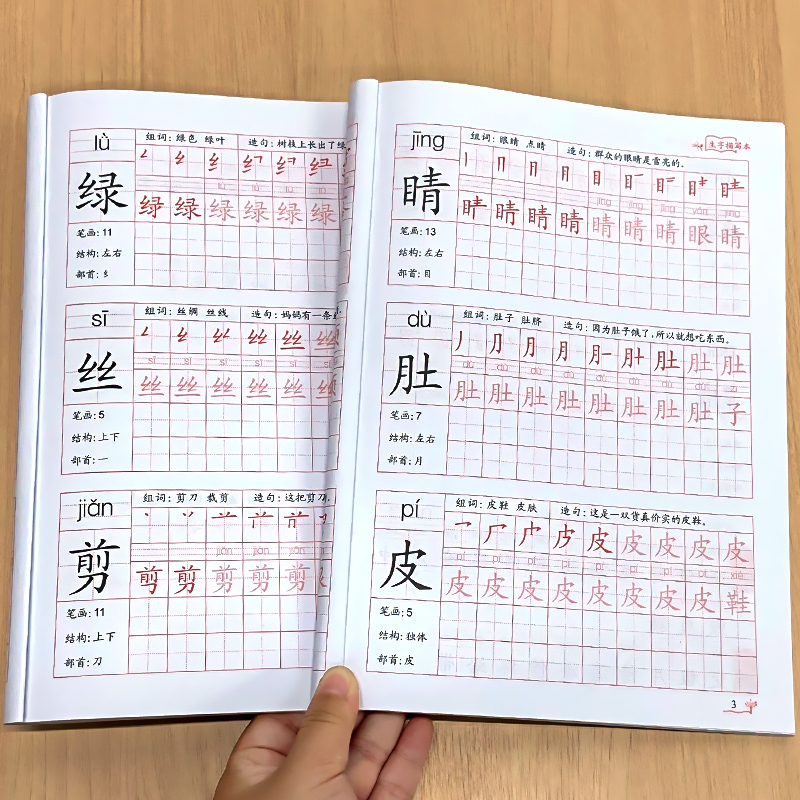 lǜ
组词: 绿色 绿叶 造句: 树枝上长出了绿
绿
lǜ lǜ lǜ lǜ
绿 绿 绿 绿 绿 绿
笔画: 11
结构: 左右
部首: 纟
sī
组词: 丝绸 丝线 造句: 妈妈有一条丝
丝
sī sī sī sī sī sī
丝 丝 丝 丝 丝 丝
笔画: 5
结构: 上下
部首: 一
jiǎn
组词: 剪刀 裁剪 造句: 这把剪刀
剪
jiǎn jiǎn jiǎn
剪 剪 剪 剪 剪
笔画: 11
结构: 上下
部首: 刀
生字描写本
jīng
组词: 眼睛 点睛 造句: 群众的眼睛是雪亮的。
睛
jīng jīng jīng yǎn jīng
睛 睛 睛 睛 睛 睛 眼 睛
笔画: 13
结构: 左右
部首: 目
dù
组词: 肚子 肚脐 造句: 因为肚子饿了,所以就想吃东西。
肚 肚 肚
肚
dù dù dù dù dù dù dù dù zi
肚 肚 肚 肚 肚 肚 肚 肚 子
笔画: 7
结构: 左右
部首: 月
pí
组词: 皮鞋 皮肤 造句: 这是一双货真价实的皮鞋。
皮 皮 皮 皮 皮
皮
pí pí pí pí pí pí pí pí xié
皮 皮 皮 皮 皮 皮 皮 皮 鞋
笔画: 5
结构: 独体
部首: 皮
3